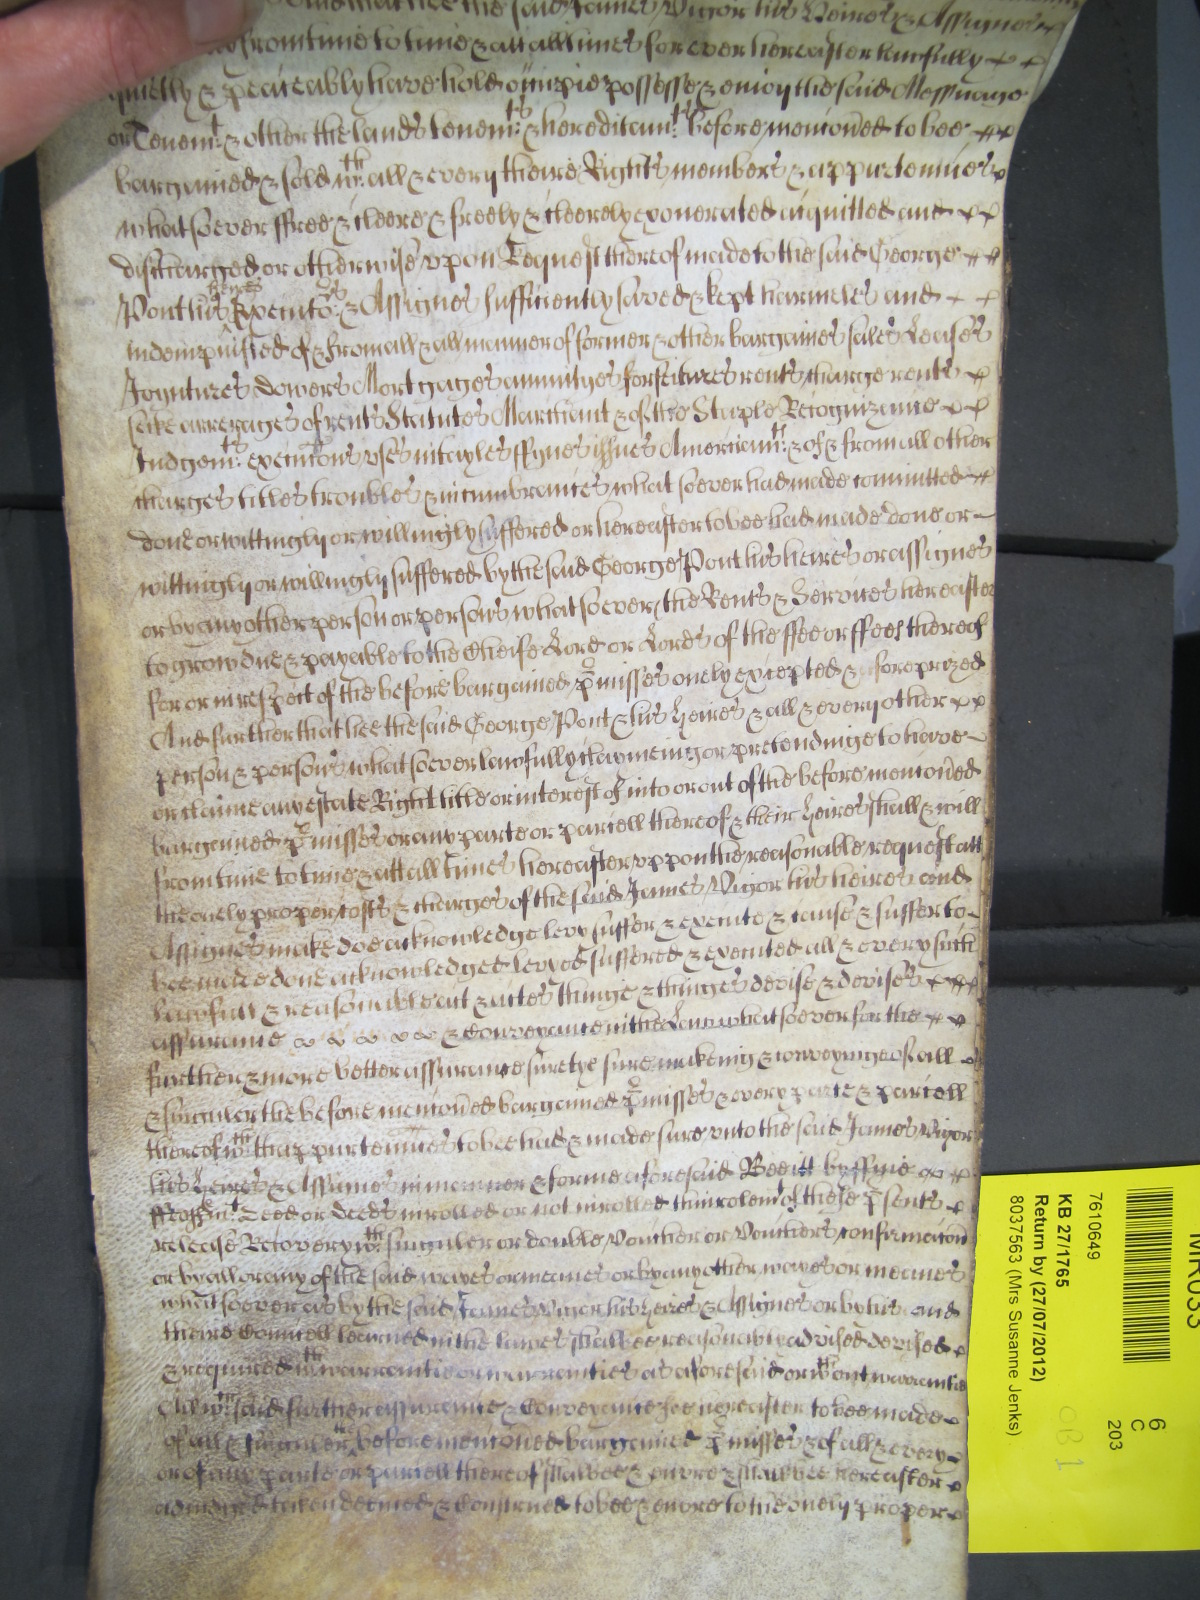 And that hee the said James Vigor his Heires & Assignes
from time to time & att all times for ever hereafter lawfully
quietly & peaceably have hold occupie possesse & enioy the said Messuage
or Tenemt & other the lands tenemts & hereditamts before mencioned to bee
bargained & sold wth all & every theire Rights members & appurtennces
whatsoever ffree & cleere & freely & cleerely exonerated acquitted and
discharged or otherwise upon Request thereof made to the said George
Pont his heires Executors & Assignes sufficiently saved & kept harmeles and
indempnified of & from all & all manner of former & other bargaines sales Leases
Joyntures dowers Mortgages annuityes forfeitures rents charge rents
secke arrerages of rents Statutes Marchant & of the Staple Recognizance
Judgemts executions uses intayles ffynes issues Amerciamts & of & from all other
charges titles troubles & incumbrances whatsoever had made committed
done or wittingly or willingly suffered or hereafter to bee had made done or
wittingly or willingly suffered by the said George Pont his heires or assignes
or by any other person or persons whatsoever (the Rents & Services hereafter
to grow due & payable to the Cheife Lord or Lords of the ffee or ffees thereof
for or in respect of the before bargained pmisses onely excepted & foreprized
And further that hee the said George Pont & his heires & all & every other
person & persons whatsoever lawfully claymeing or pretendinge to have
or claime any estate Right title or interest of into or out of the before mencioned
bargained pmisses or any parte or parcell thereof & their heires shall & will
from time to time & att all times hereafter uppon the reasonable request att
the onely proper costs & charges of the said James Vigor his heires and
Assignes make doe acknowledge levy suffer & execute & cause & suffer to
bee made done acknowledged levyed suffered & executed all & every such
lawfull & reasonable act & actes thinge & thinges devise & devises
assurance & Conveyance in the Law whatsoever for the
further & more better assurance suretye sure makeing & conveyinge of all
& singuler the before mencioned bargained pmisses & every parte & parcell
thereof wth thappurtennces to bee had & made sure unto the said James Vigor
his Heires & Assignes in manner & forme aforesaid Bee itt by ffyne
ffeoffmt Deed or deeds inrolled or not inrolled thinrolemt of these psents
release Recovery wth singuler or double Voucher or Vouchers confirmacion
or by all or any of the said wayes or meanes or by any other wayes or meanes
whatsoever as by the said James Vigor his Heires & Assignes or by his and
theire Councell learned in the lawes shalbee reasonably advised devised
& required wth warrantie or warranties as aforesaid or wthout warrantie
All wch said further assurance & Conveyance soe hereafter to bee made
of all & singuler the before mencioned bargained pmisses & of all & every
or of any parte or parcell thereof shalbee & enure & shalbee hereafter
adiudged taken deemed & construed to bee & enure to the onely proper
7610649
KB 27/1765
Return by (27/07/2012)
8037563 (Mrs Susanne Jenks)
MR033
6
C
203
OB 1